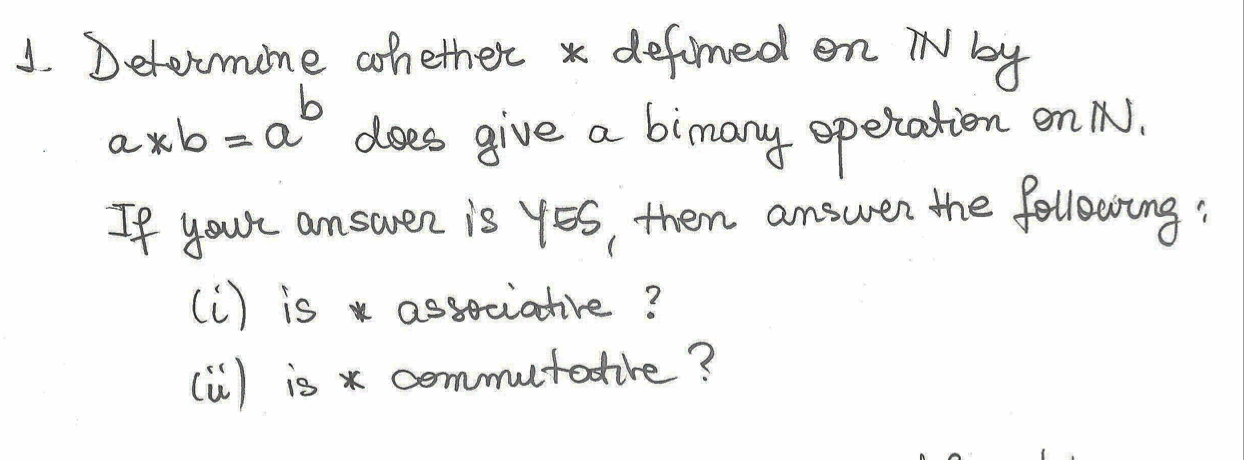 1 Determine whether * defined on ℕ by
a*b = a^b does give a binary operation on ℕ.
If your answer is YES, then answer the following:
(i) is * associative?
(ii) is * commutative?